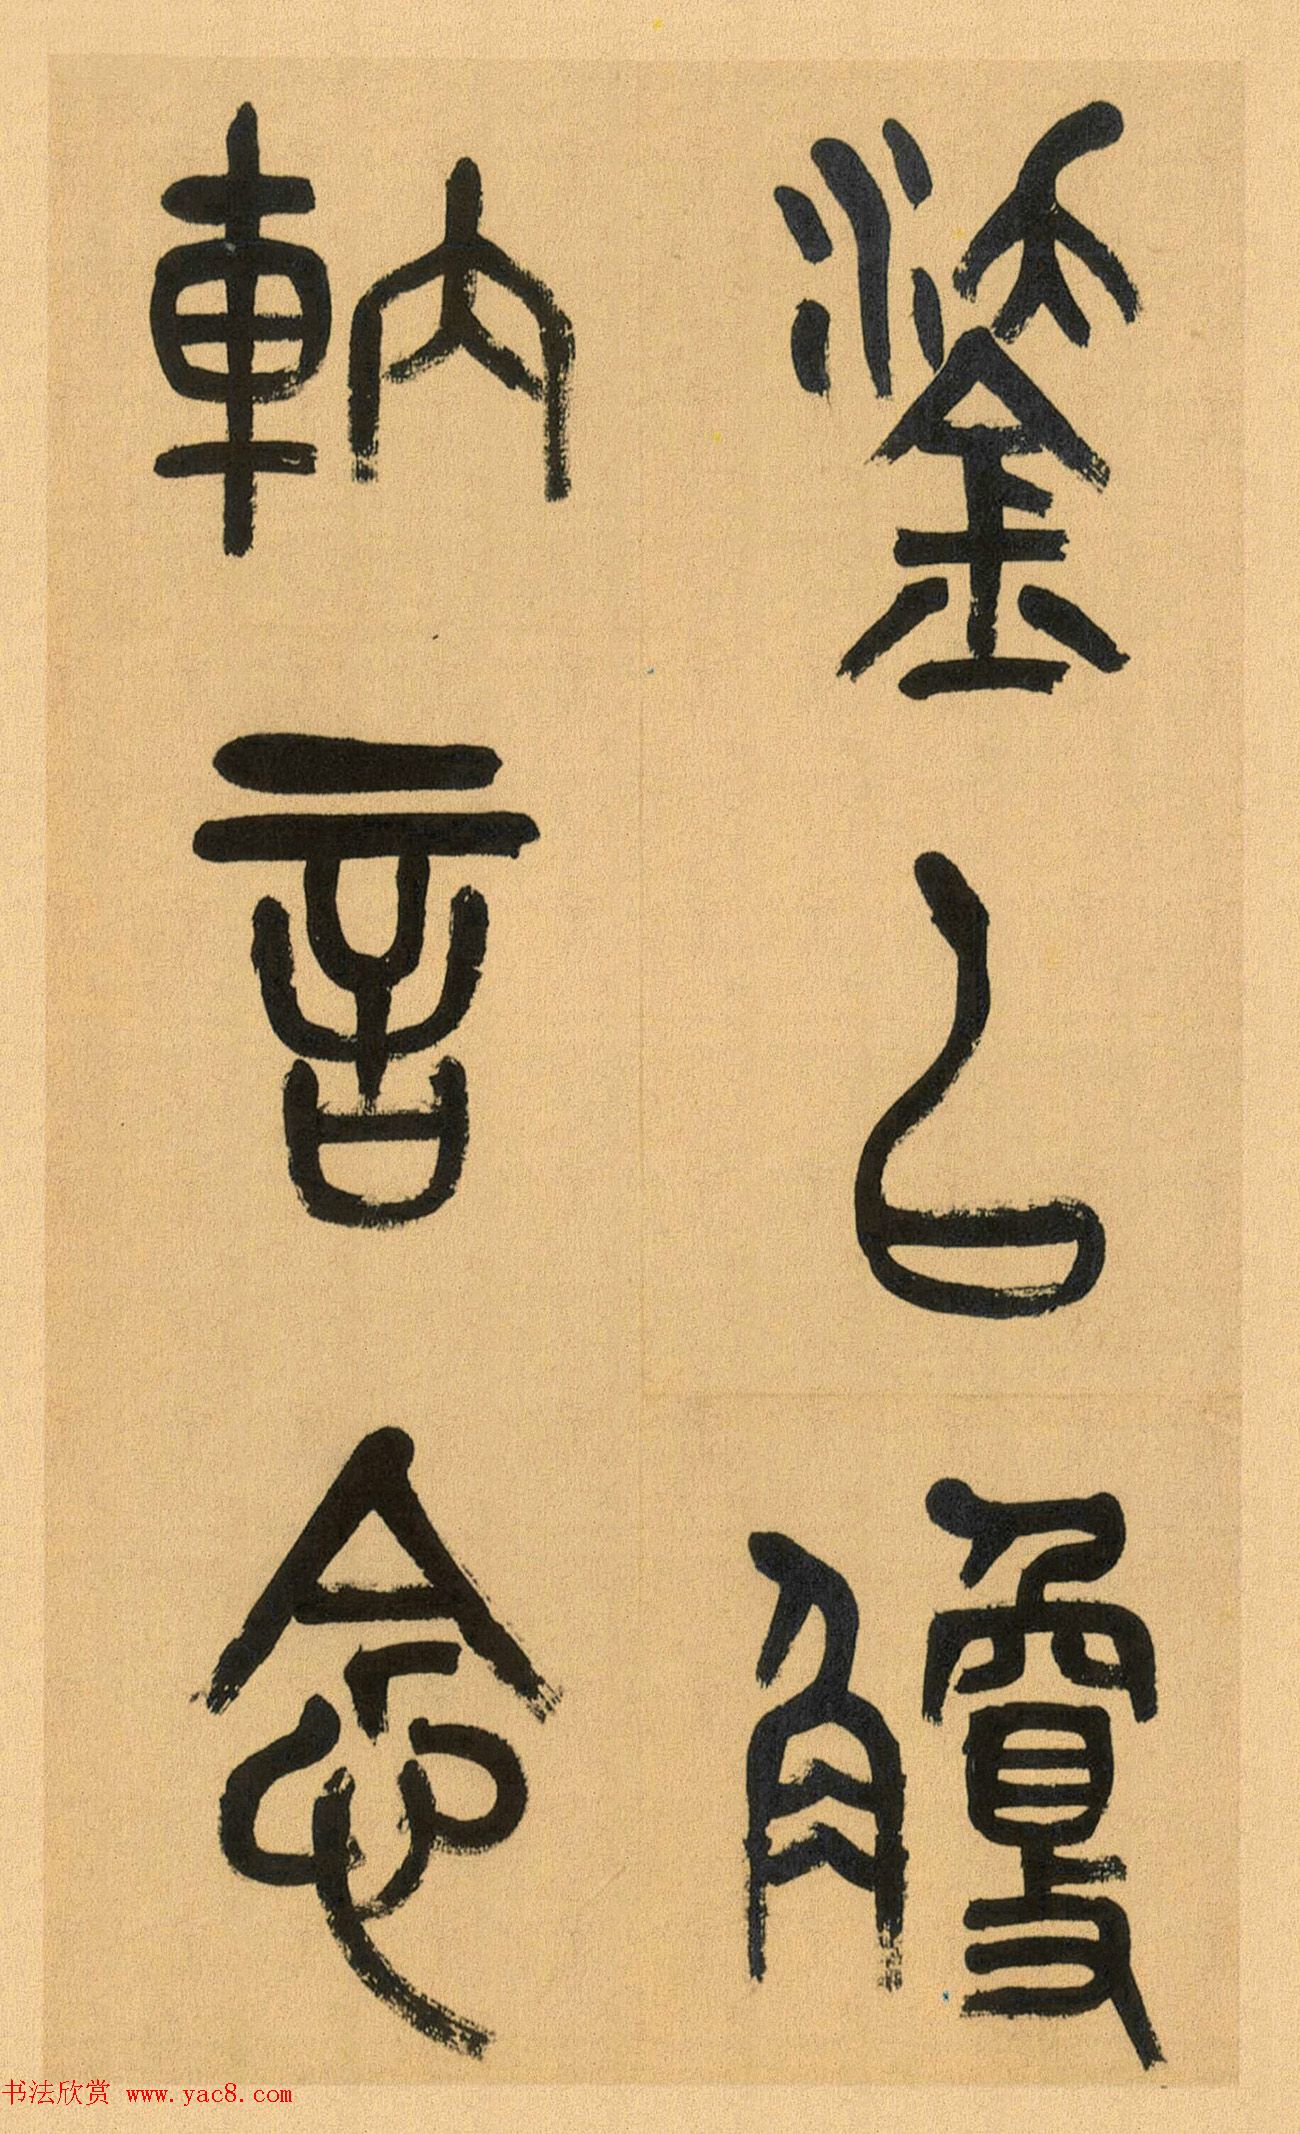 鋈以觼
軜言念
书法欣赏 www.yac8.com